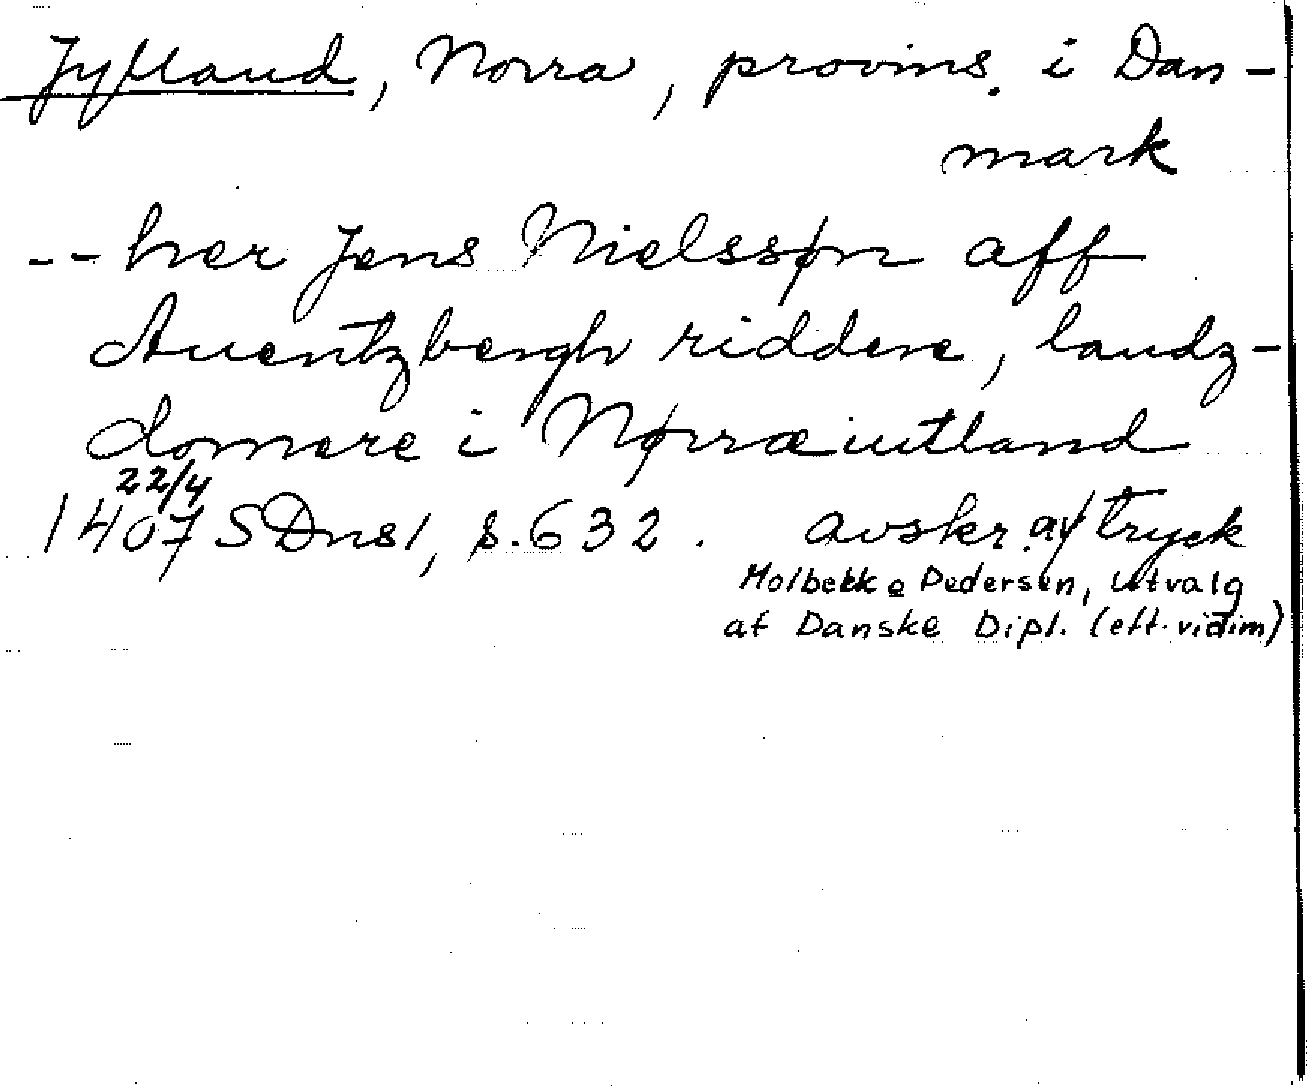 Jylland, Norra, provins. i Dan-
mark
-- her Jens Nielssøn aff
Auentzbergh riddere, landz-
domere i Nørræiutland
22/4
1407 SDns1, s. 632. avskr. av tryck
Molbekk o Pedersen, Utvalg
af Danske Dipl. (eft. vidim)